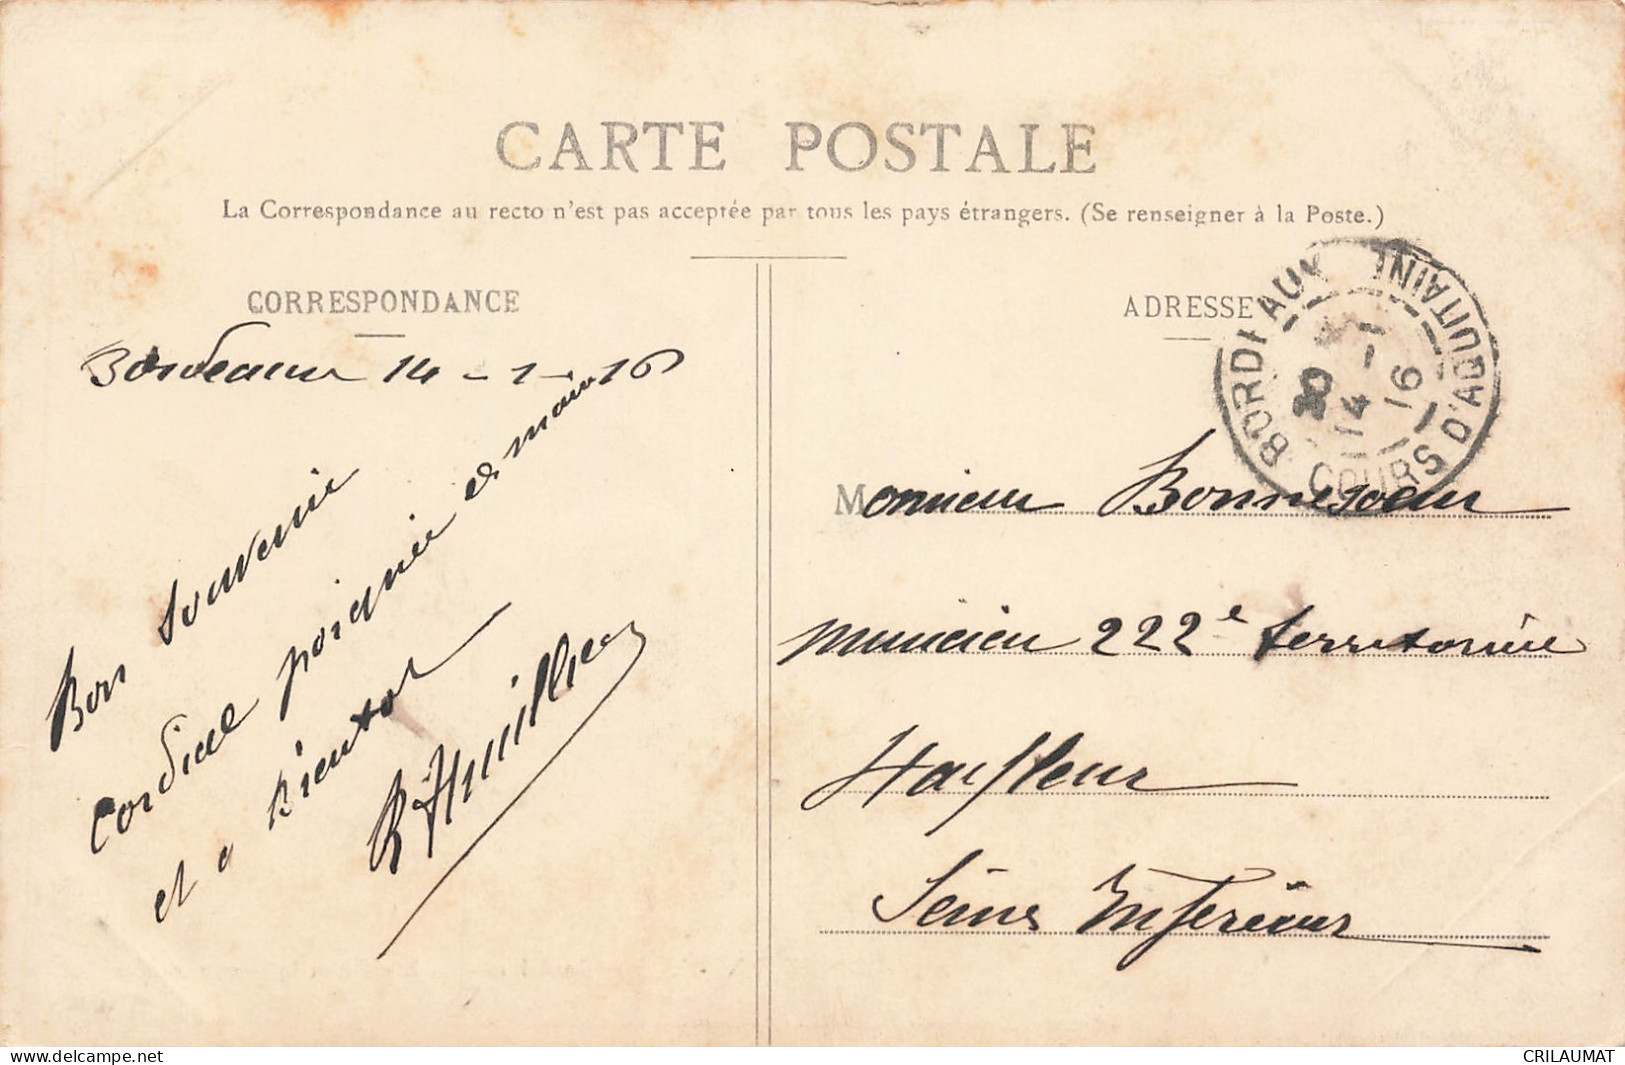 CARTE POSTALE
La Correspondance au recto n'est pas acceptée par tous les pays étrangers. (Se renseigner à la Poste.)
CORRESPONDANCE
Bordeaux 14 - 1 - 16
Bon souvenir
cordiale poignée de main
et a bientot
ADRESSE
BORDEAUX COURS D'AQUITAINE
14 - 1
16
Monsieur Bonnesoeur
musicien 222e territoriale
Harfleur
Seine Inferieure
delcampe.net
CRILAUMAT